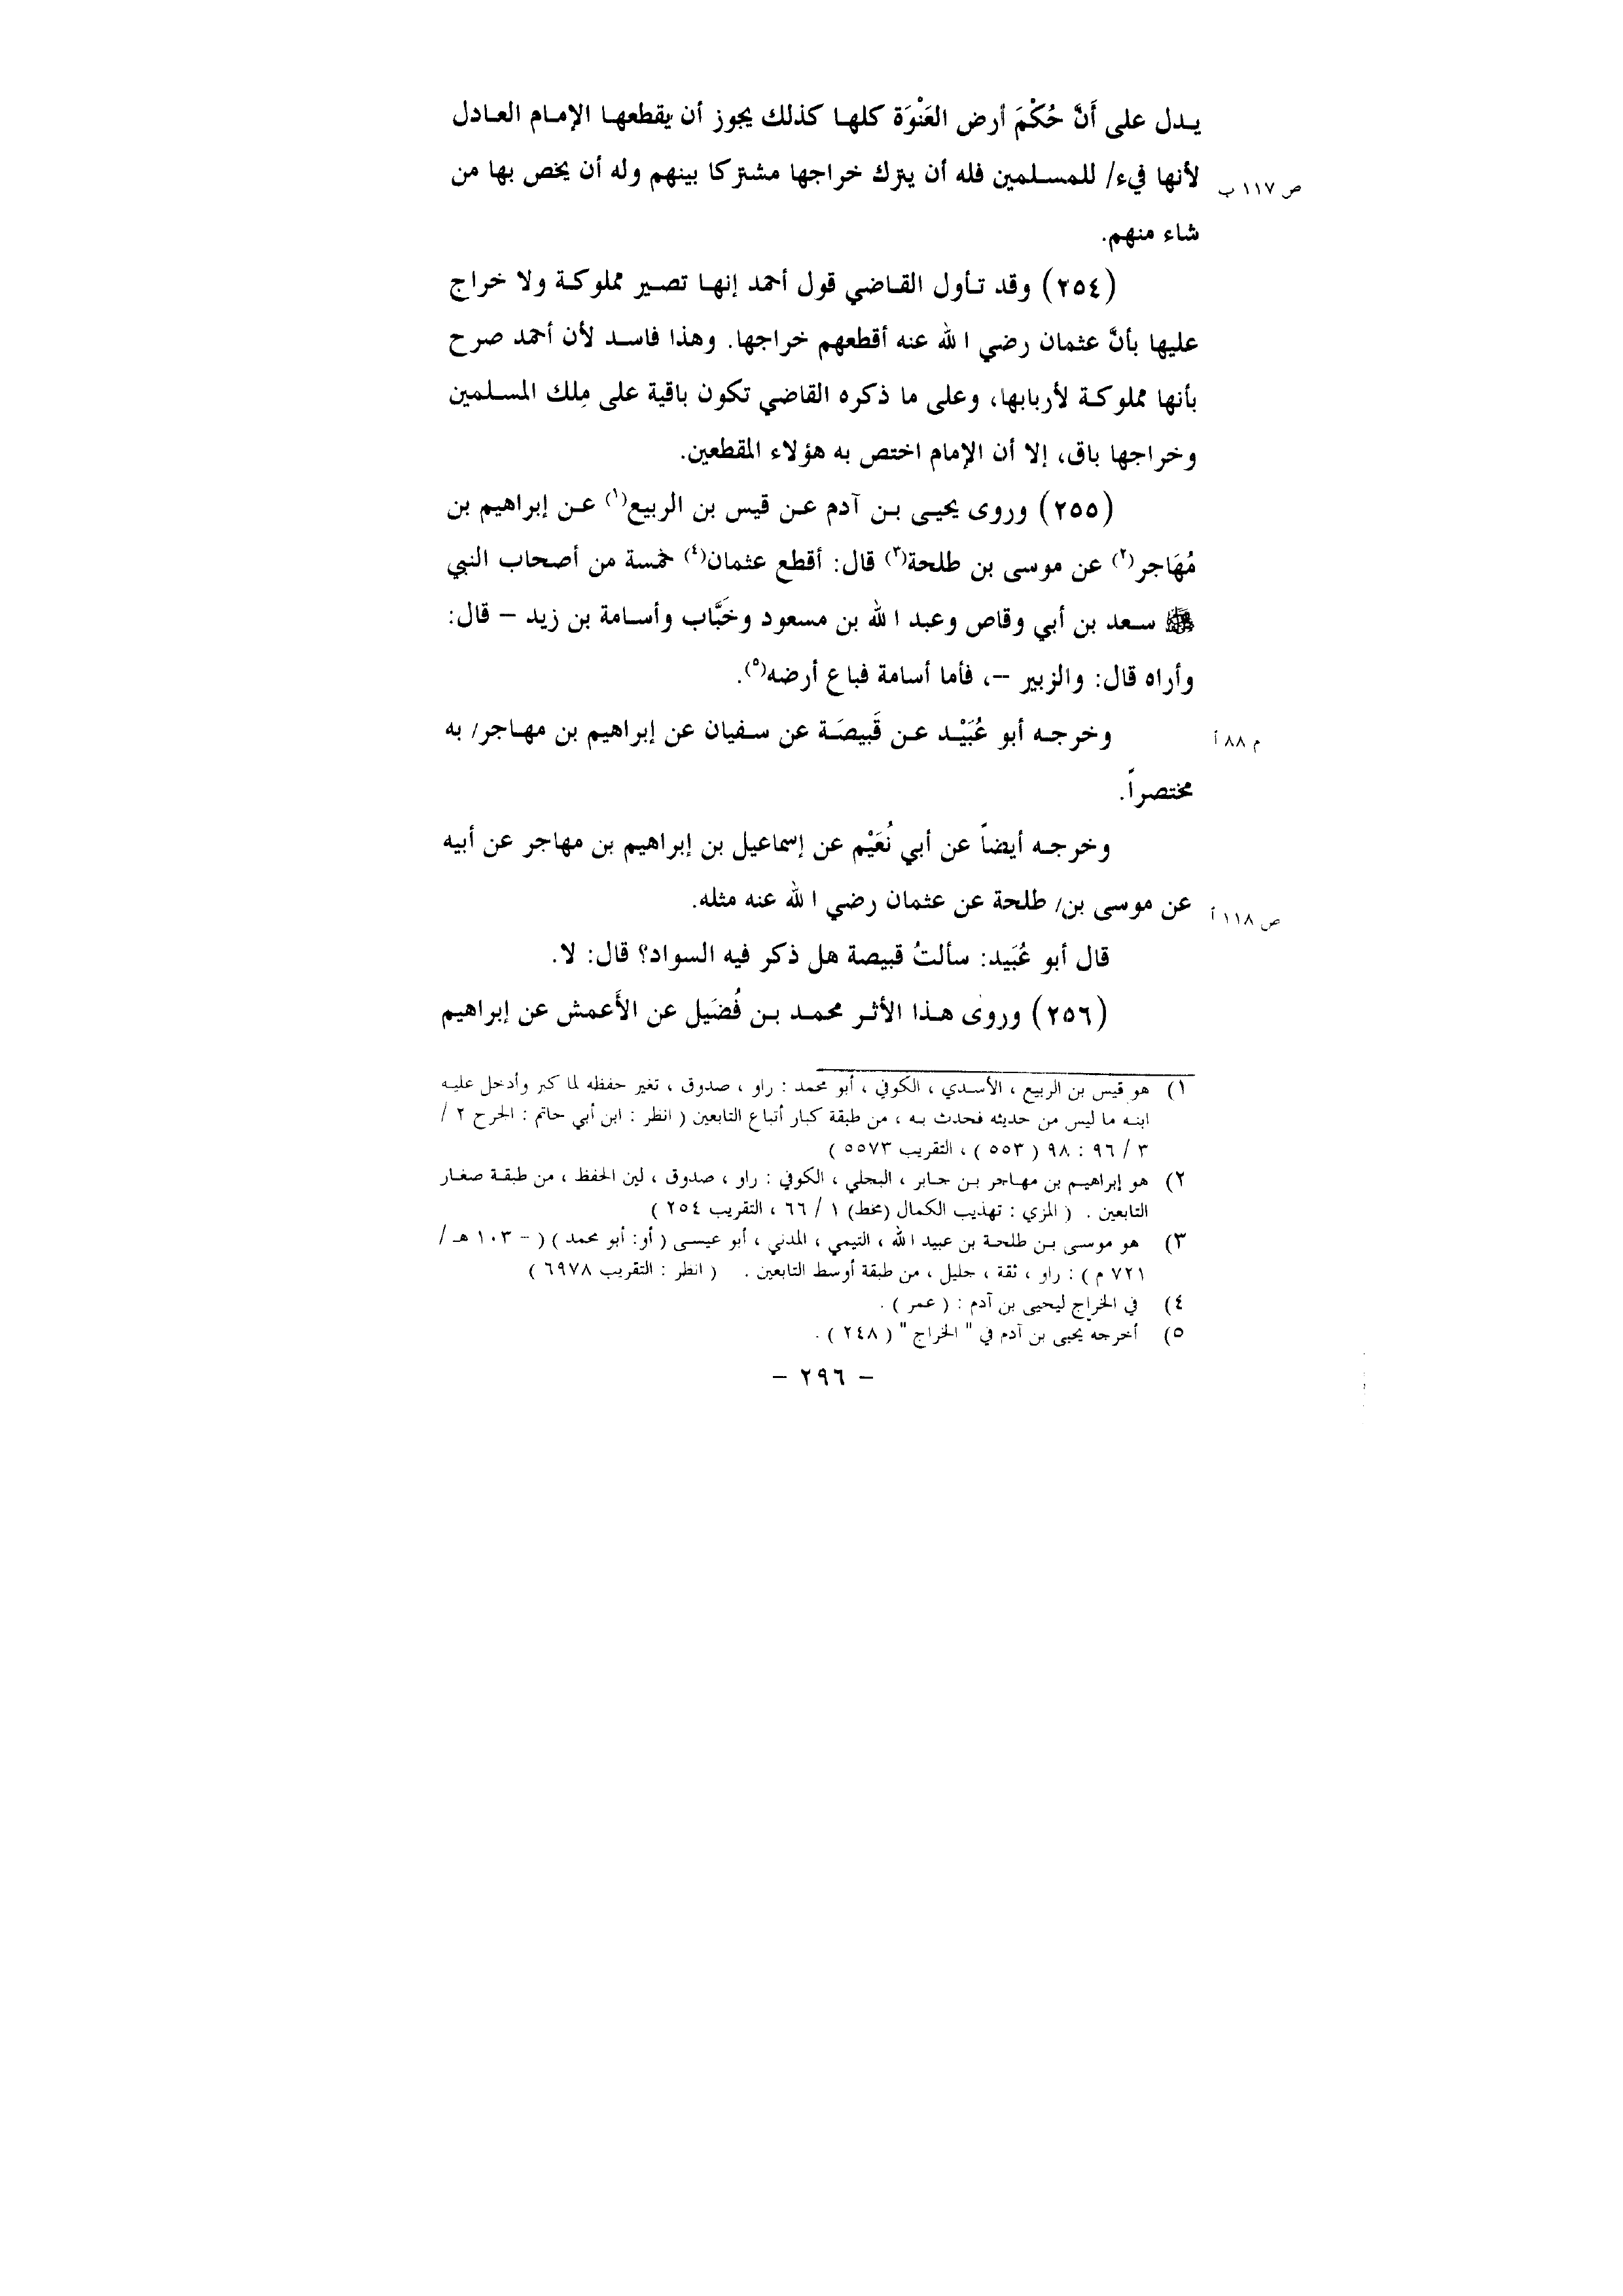 يـدل على أَنَّ حُكْمَ أرض العَنْوَة كلهـا كذلك يجوز أن يقطعهـا الإمـام العـادل
لأنها فيء/ للمسـلمين فله أن يترك خراجها مشتركا بينهم وله أن يخص بها من
ص ١١٧ ب
شاء منهم.
(٢٥٤) وقد تـأول القـاضي قول أحمد إنهـا تصـير مملوكـة ولا خراج
عليها بأنَّ عثمان رضي الله عنه أقطعهم خراجها. وهذا فاسـد لأن أحمد صرح
بأنها مملوكـة لأربابها، وعلى ما ذكره القاضي تكون باقية على مِلك المسـلمين
وخراجها باق، إلا أن الإمام اختص به هؤلاء المقطعين.
(٢٥٥) وروى يحيـى بـن آدم عـن قيس بن الربيع(١) عـن إبراهيم بن
مُهَاجر(٢) عن موسى بن طلحة(٣) قال: أقطع عثمان(٤) خمسة من أصحاب النبي
ﷺ سـعد بن أبي وقاص وعبد الله بن مسعود وخَبَّاب وأسـامة بن زيد – قال:
وأراه قال: والزبير –، فأما أسامة فباع أرضه(٥).
وخرجـه أبو عُبَيْـد عـن قَبيصَـة عن سـفيان عن إبراهيم بن مهـاجر/ به
م ٨٨ أ
مختصراً.
وخرجـه أيضاً عن أبي نُعَيْم عن إسماعيل بن إبراهيم بن مهاجر عن أبيه
عن موسى بن/ طلحة عن عثمان رضي الله عنه مثله.
ص ١١٨ أ
قال أبو عُبَيد: سألتُ قبيصة هل ذكر فيه السواد؟ قال: لا.
(٢٥٦) وروى هـذا الأثـر محمـد بـن فُضَيل عن الأَعمش عن إبراهيم
١) هو قيس بن الربيع ، الأسـدي ، الكوفي ، أبو محمد : راو ، صدوق ، تغير حفظه لما كبر وأدخل عليـه
ابنـه ما ليس من حديثه فحدث بـه ، من طبقة كبار أتباع التابعين ( انظر : ابن أبي حاتم : الجرح ٢ /
٣ / ٩٦ : ٩٨ ( ٥٥٣ ) ، التقريب ٥٥٧٣ )
٢) هو إبراهيـم بن مهـاجر بـن جـابر ، البجلي ، الكوفي : راو ، صدوق ، لين الحفظ ، من طبقـة صغـار
التابعين . ( المزي : تهذيب الكمال (مخط) ١ / ٦٦ ، التقريب ٢٥٤ )
٣) هو موسـى بـن طلحـة بن عبيد الله ، التيمي ، المدني ، أبو عيسـى ( أو: أبو محمد ) ( – ١٠٣ هـ /
٧٢١ م ) : راو ، ثقة ، جليل ، من طبقة أوسط التابعين . ( انظر : التقريب ٦٩٧٨ )
٤) في الخراج ليحيى بن آدم : ( عمر ) .
٥) أخرجه يحيى بن آدم في " الخراج " ( ٢٤٨ ) .
– ٢٩٦ –